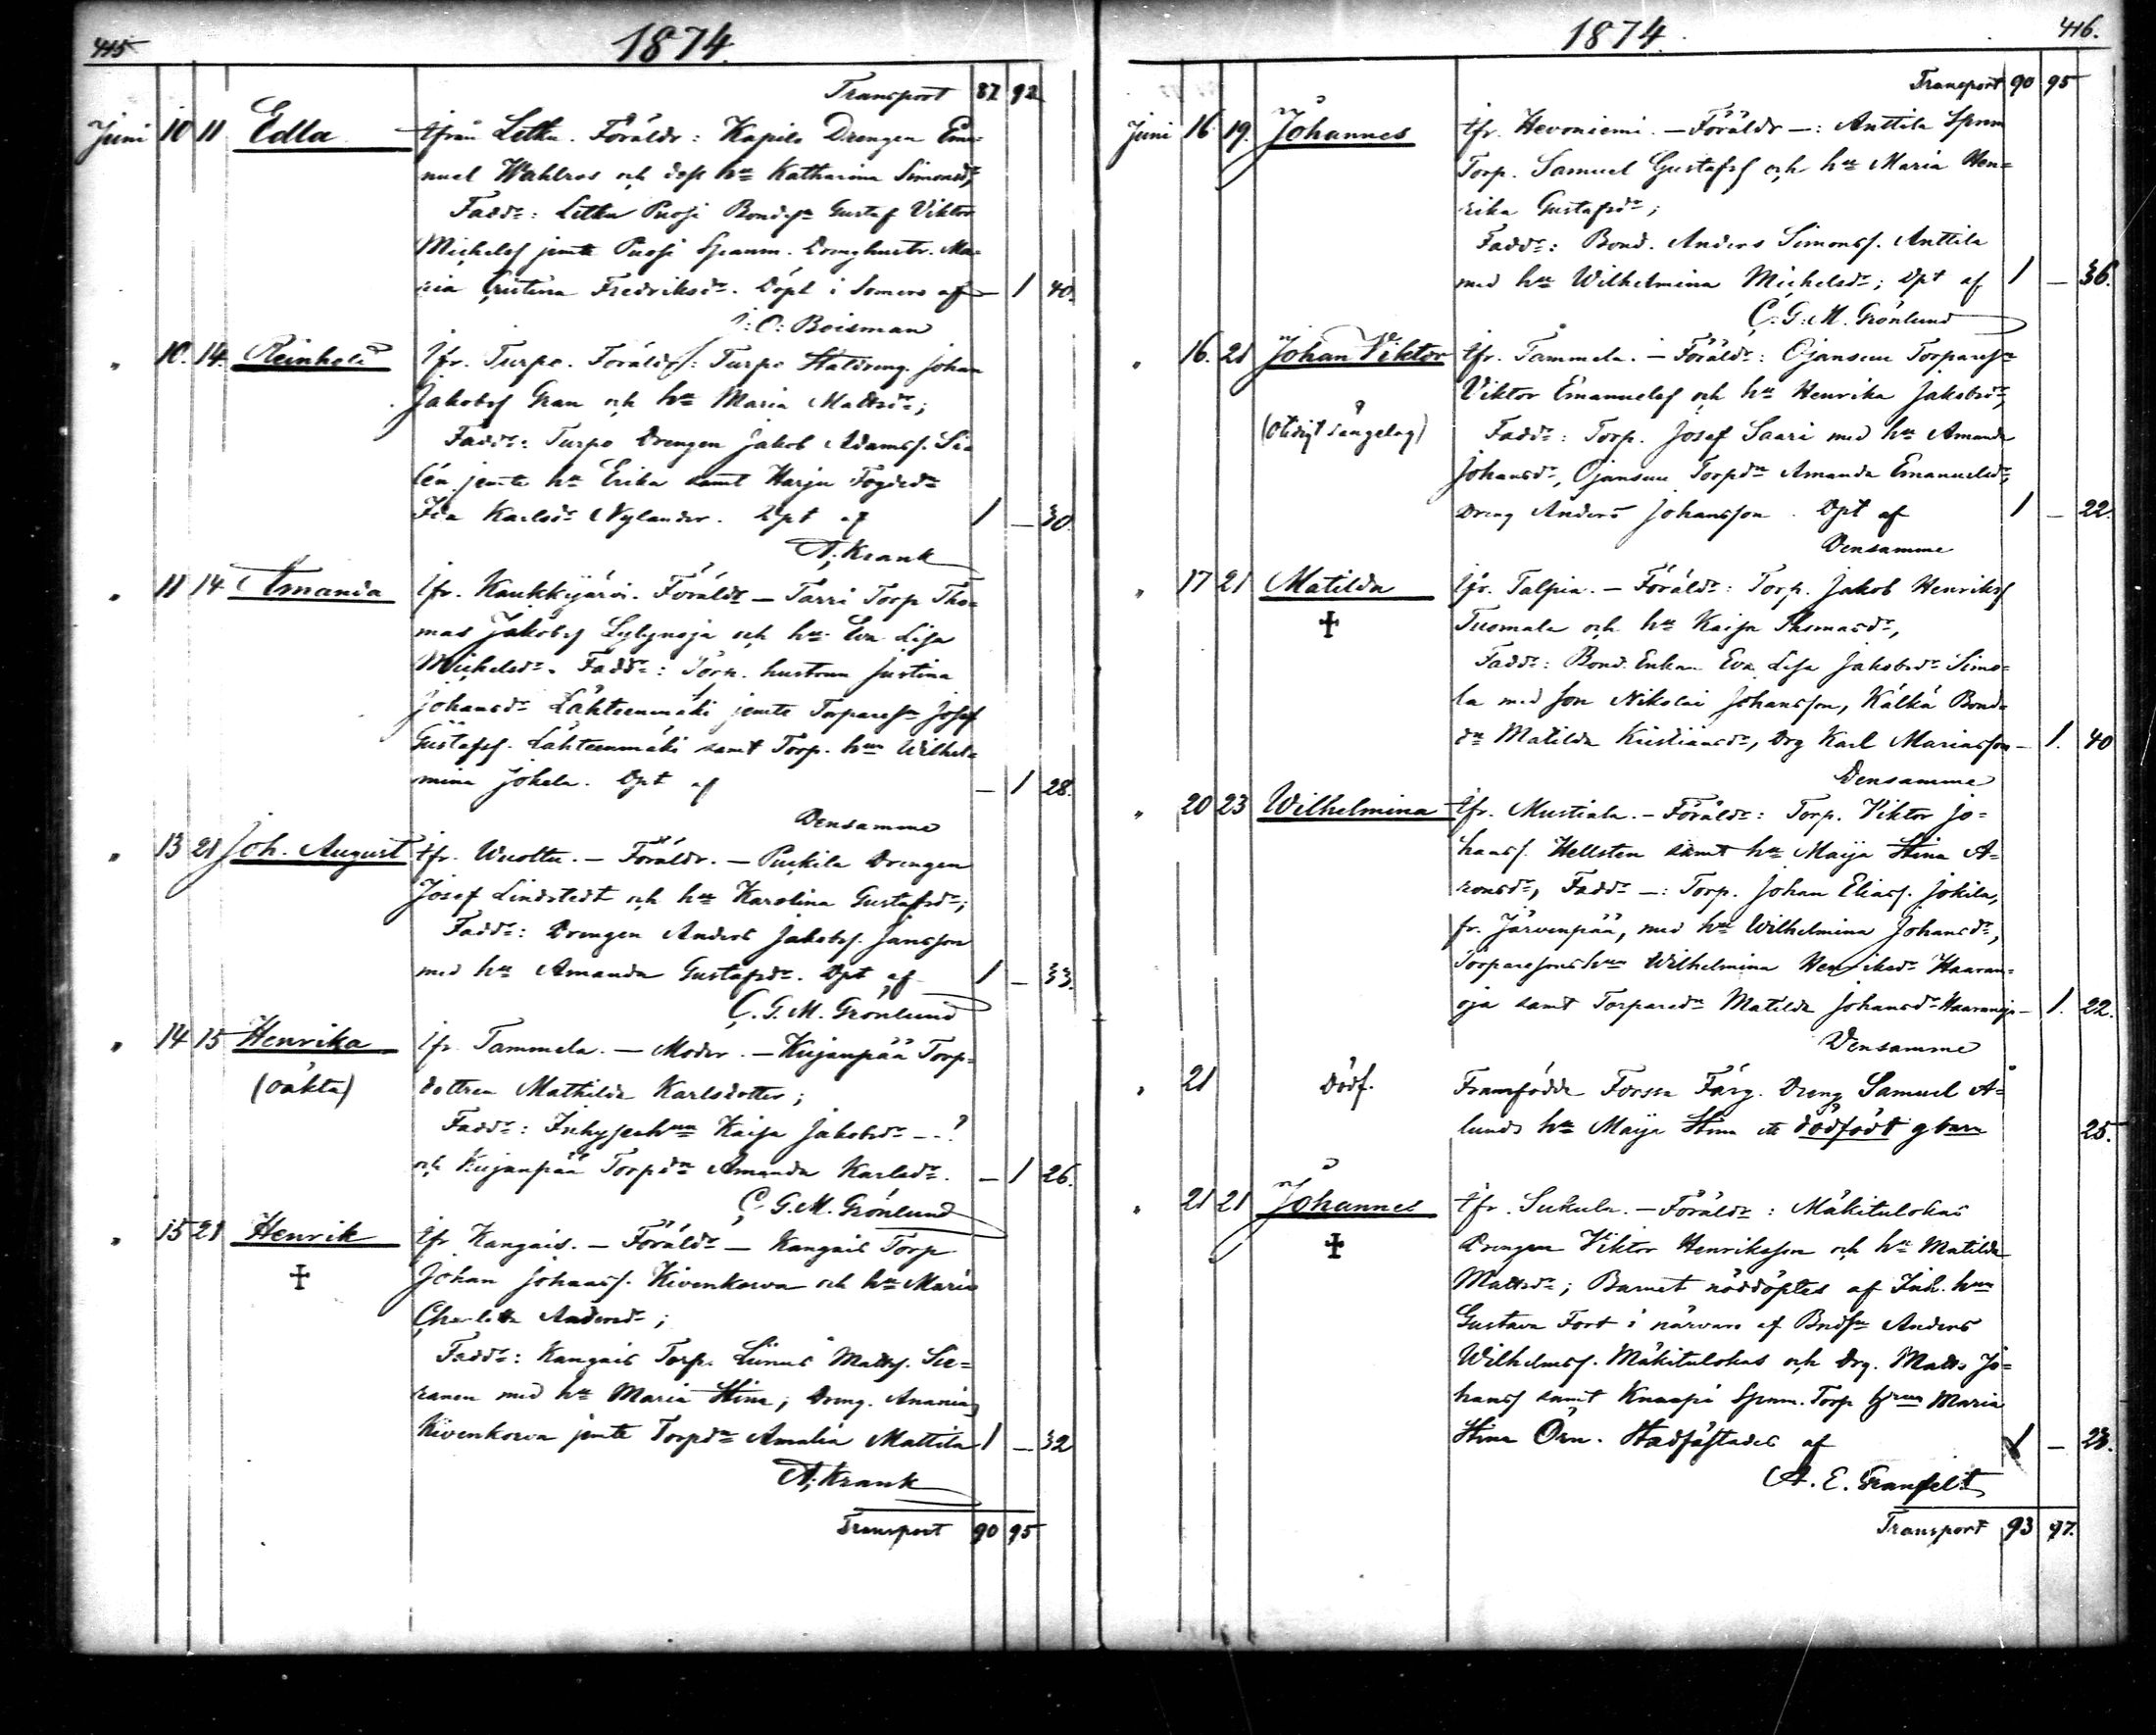 415 1874.
Transport 87 92
Juni 10 11 Edla ifrån Letku. Föräldr: Kapils Drengen Ema-
nuel Wahlros och dess hu Katharina Simonsdr,
Faddr: Letku Puosi Bondesn Gustaf Viktor
Michelss jemte Puosi Spanm. Drenghustr. Ma-
ria Cristina Fredriksdr. Döpt i Somero af — 1 40.
J: O: Boisman
" 10. 14. Reinhold ifr. Turpo. Föräldr: Turpo Statdreng. Johan
Jakobss Gran och hu Maria Mattsdr;
Faddr: Turpo Drengen Jakob Adamss. Si-
lén jemte hu Erika samt Harju Fogdedr
Ida Karlsdr Nylander. Dpt af 1 — 30.
A. Krank
" 11 14 Amanda ifr. Kaukkijärvi. Föräldr — Tarri Torp Tho-
mas Jakobss Lylynoja och hu Eva Lisa
Michelsdr. Faddr: Torp. hustrun Justina
Johansdr Lähteenmäki jemte Torparesn Josef
Gustafss. Lähteenmäki samt Torp. hun Wilhel-
mina Jokela. Dpt af — 1 28.
Densamme
" 13 21 Joh. August ifr. Wuoltu. — Föräldr. — Puskila Drengen
Josef Lindstedt och hu Karolina Gustafsdr;
Faddr: Drengen Anders Jakobss. Jansson
med hu Amanda Gustafsdr. Dpt af 1 — 33.
C. G. M. Grönlund
" 14 15 Henrika ifr. Tammela. — Moder. — Kujanpää Torp-
(oäkta) dottren Mathilda Karlsdotter;
Faddr: Inhyseshun Kaisa Jakobsdr — ?
och Kujanpää Torpdn Amanda Karlsdr. — 1 26.
C. G. M. Grönlund
" 15 21 Henrik ifr Kangais. — Föräldr — Kangais Torp
✝ Johan Johanss. Kivenkorva och hu Maria
Charlotta Andersdr;
Faddr: Kangais Torp. Linus Matts. Sie-
ranen med hu Maria Stina; Dreng. Ananias
Kivenkorva jemte Torpdr Amalia Mattila 1 — 32
A. Krank
Transport 90 95
1874. 416.
Transport 90 95
Juni 16 19. Johannes ifr. Hevoniemi. — Föräldr —: Anttila Spnm
Torp. Samuel Gustafss och hu Maria Hen-
rika Gustafsdr;
Faddr: Bond. Anders Simonss. Anttila
med hu Wilhelmina Michelsdr; Dpt af 1 — 36.
C: G: M. Grönlund
" 16. 21 Johan Viktor ifr. Tammela. — Föräldr: Ojansuu Torparesn
Viktor Emanuelss och hu Henrika Jakobsdr,
(otidigt sängelag) Faddr: Torp. Josef Saari med hu Amanda
Johansdr, Ojansuu Torpdn Amanda Emanuelsdr,
Dreng Anders Johansson. Dpt af 1 — 22.
Densamme
" 17 21 Matilda ifr. Talpia. — Föräldr: Torp. Jakob Henrikss
✝ Tuomala och hu Kaisa Thomasdr,
Faddr: Bond. Enkan Eva Lisa Jakobsdr Simo-
la med son Nikolai Johansson, Kälkä Bond-
dn Matilda Kristiansdr, Drg Karl Mariasson — 1. 40
Densamme
" 20 23 Wilhelmina ifr. Mustiala. — Föräldr: Torp. Viktor Jo-
hanss. Hellsten samt hu Maija Stina A-
ronsdr, Faddr —: Torp. Johan Eliass. Jokila,
fr. Järvenpää, med hu Wilhelmina Johansdr,
Torparesonshun Wilhelmina Henriksdr Haaran-
oja samt Torparedn Matilda Johansdr Haaranoja — 1. 22.
Densamme
" 21 Dödf. Framfödde Forssa Färg. Dreng Samuel Å-
lunds hu Maija Stina ett dödfödt gbarn 25.
" 21 21 Johannes ifr. Sukula. — Föräldr: Mäkitulokas
✝ Drengen Viktor Henriksson och hu Matilda
Mattsdr; Barnet nöddöptes af Inh. hun
Gustava Fort i närvaro af Bndsn Anders
Wilhelmss. Mäkitulokas och Drg. Matts Jo-
hanss samt Knaapi Spnm. Torp Maria
Stina Örn. Stadfästades af 1 — 23.
A. E. Granfelt
Transport 93 97.